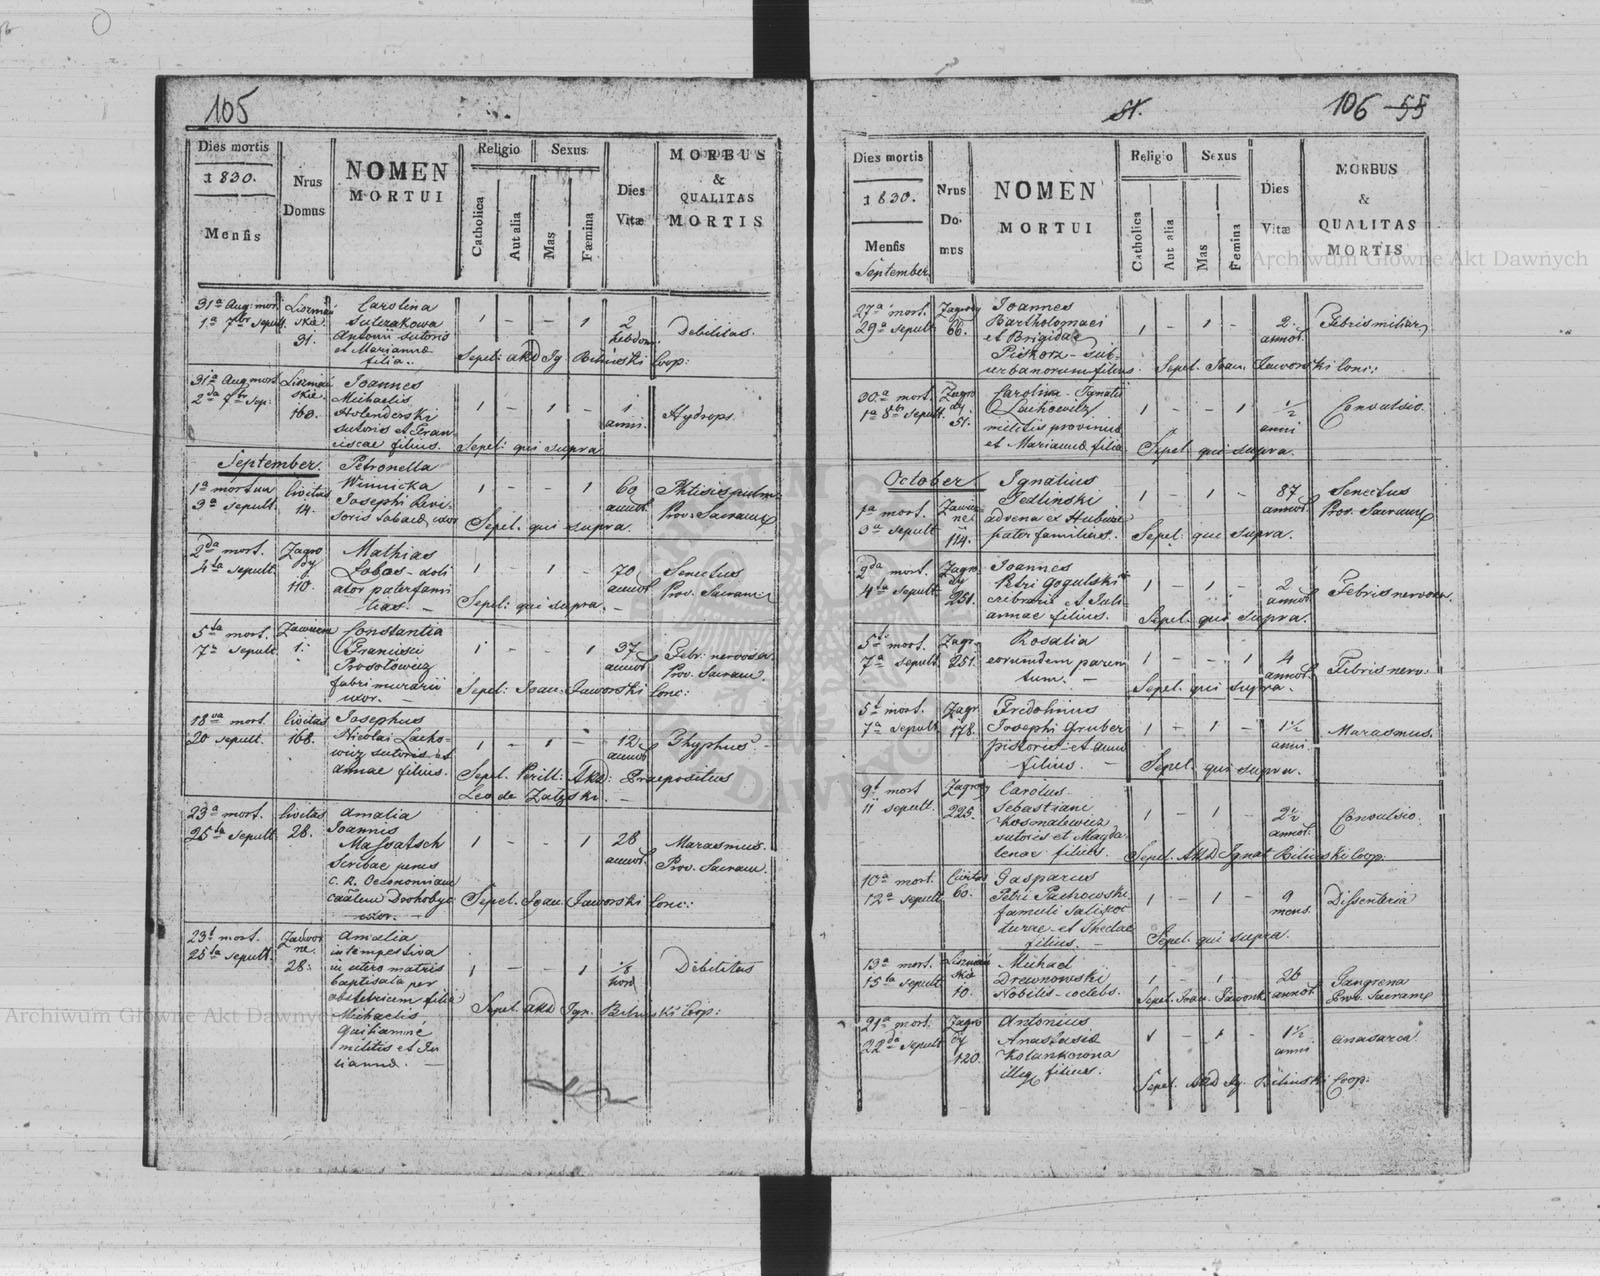 105
Dies mortis
1830.
Mensis
Nrus
Domus
NOMEN
MORTUI
Religio
Catholica
Aut alia
Sexus
Mas
Fæmina
Dies
Vitæ
MORBUS
&
QUALITAS
MORTIS
31a Aug: mor.
1a 7br sepult.
31.
Carolina
Antonii sutoris
et Mariannæ
filia.
1 - - 1
2
Debilitas.
Sepel: ARD Ig Biliński Coop:
31a Aug mort
2da 7br sep:
160.
Joannes
Michaelis
Holenderski
sutoris et Fran-
ciscae filius.
1 - 1 -
1
anni.
Hydrops.
Sepel: qui supra
September.
1a mortua
3a sepult.
Civitas
14.
Petronella
Winnicka
Josephi Revi-
soris Tabacc, uxor
1 - - 1
60
annor.
Phtisis pulm:
Prov. Sacram
Sepel. qui supra.
2da mort.
4ta sepult.
Zagro
dy
110.
Mathias
Łobos - doli
ator paterfami
lias. -
1 - 1 -
70
annor.
Senectus
Prov. Sacram
Sepel: qui supra. -
5ta mort.
7a sepult.
1.
Constantia
Francisci
fabri murarii
uxor. -
1 - - 1
37
annor.
Febr: nervosa.
Prov. Sacram.
Sepel: Joan. Jaworski Conc:
18va mort.
20 sepult.
Civitas
168.
Josephus
Nicolai Lacho-
wicz sutoris et
Annae filius.
1 - 1 -
12
annor.
Thyphus. -
Sepel. Perill: ARD: Praepositus
Leo de Zalżski. -
23a mort.
25ta sepult.
Civitas
28.
Amalia
Joannis
Scribae penes
C. R. Oeconomiam
uxor. -
1 - - 1
28
annor.
Marasmus.
Prov. Sacram.
Sepel. Joan. Jaworski Conc:
23t mort.
25ta sepult.
Zadwor
ne.
28.
Amalia
intempestiva
in utero matris
baptisata per
obstetricem filia
Michaelis
militis et Ju
liannæ. -
1 - - 1
Debilitas
Sepel ARD Ign. Biliński Coop:
106 55
Dies mortis
1830.
Mensis
September.
Nrus
Do-
mus
NOMEN
MORTUI
Religio
Catholica
Aut alia
Sexus
Mas
Femina
Dies
Vitæ
MORBUS
&
QUALITAS
MORTIS
27a mort.
29a sepult.
Zagrody
66.
Joannes
Bartholomaei
et Brigidae
Piskorz - sub-
urbanorum filius.
1 - 1 -
2
annor.
Febris miliar,
Sepel. Joan. Jaworski Conc:
30a mort.
1a 8br sepult.
Zagro
dy
51.
Carolina Ignatii
Lachowicz
militis provinc
et Mariannæ filia
1 - - 1
1/2
anni
Convulsio.
Sepel qui supra.
October
1a mort.
3a sepult
114.
Ignatius
Jedlinski
advena ex
pater familias.
1 - 1 -
87
annor.
Senectus
Prov. Sacram
Sepel. qui supra.
2da mort.
4ta sepult.
Zagro
dy
251.
Joannes
Petri Gogulski
cribrarii et Juli-
annae filius.
1 - 1 -
2
annor.
Febris nervosa.
Sepel. qui supra.
5t mort.
7a sepult.
Zagr.
251.
Rosalia
eorumdem paren
tum. -
1 - - 1
4
annor.
Febris nerv:
Sepel. qui supra.
5t mort.
7a sepult.
Zagr.
178.
Fredolinus
Josephi Gruber
pistoris et Annæ
filius. -
1 - 1 -
1 1/2
anni.
Marasmus.
Sepel. qui supra.
9t mort
11 sepult.
Zagrody
225.
Carolus
Sebastiani
Kosmalewicz
sutoris et Magda-
lenae filius.
1 - 1 -
2 1/2
annor.
Convulsio.
Sepel. ARD Ignat Biliński Coop:
10a mort.
12a sepult.
Civitas
60.
Gasparus
Petri Pachowski
famuli Saliscoc
turae et Theclae
filius. -
1 - 1 -
9
mens.
Dissenteria
Sepel. qui supra.
13a mort.
15ta sepult.
10.
Michael
Drewnowski
Nobilis - coelebs.
1 - 1 -
26
annor.
Gangrena
Prov. Sacram
Sepel. Joan. Jaworski
21a mort.
22da sepult.
Zagro
dy
120.
Antonius
Anastasiæ
Kolankowna
illeg filius.
1 - 1 -
1 1/2
anni
anasarca
Sepel. ARD Ig. Biliński Coop:
Archiwum Główne Akt Dawnych
Archiwum Główne Akt Dawnych